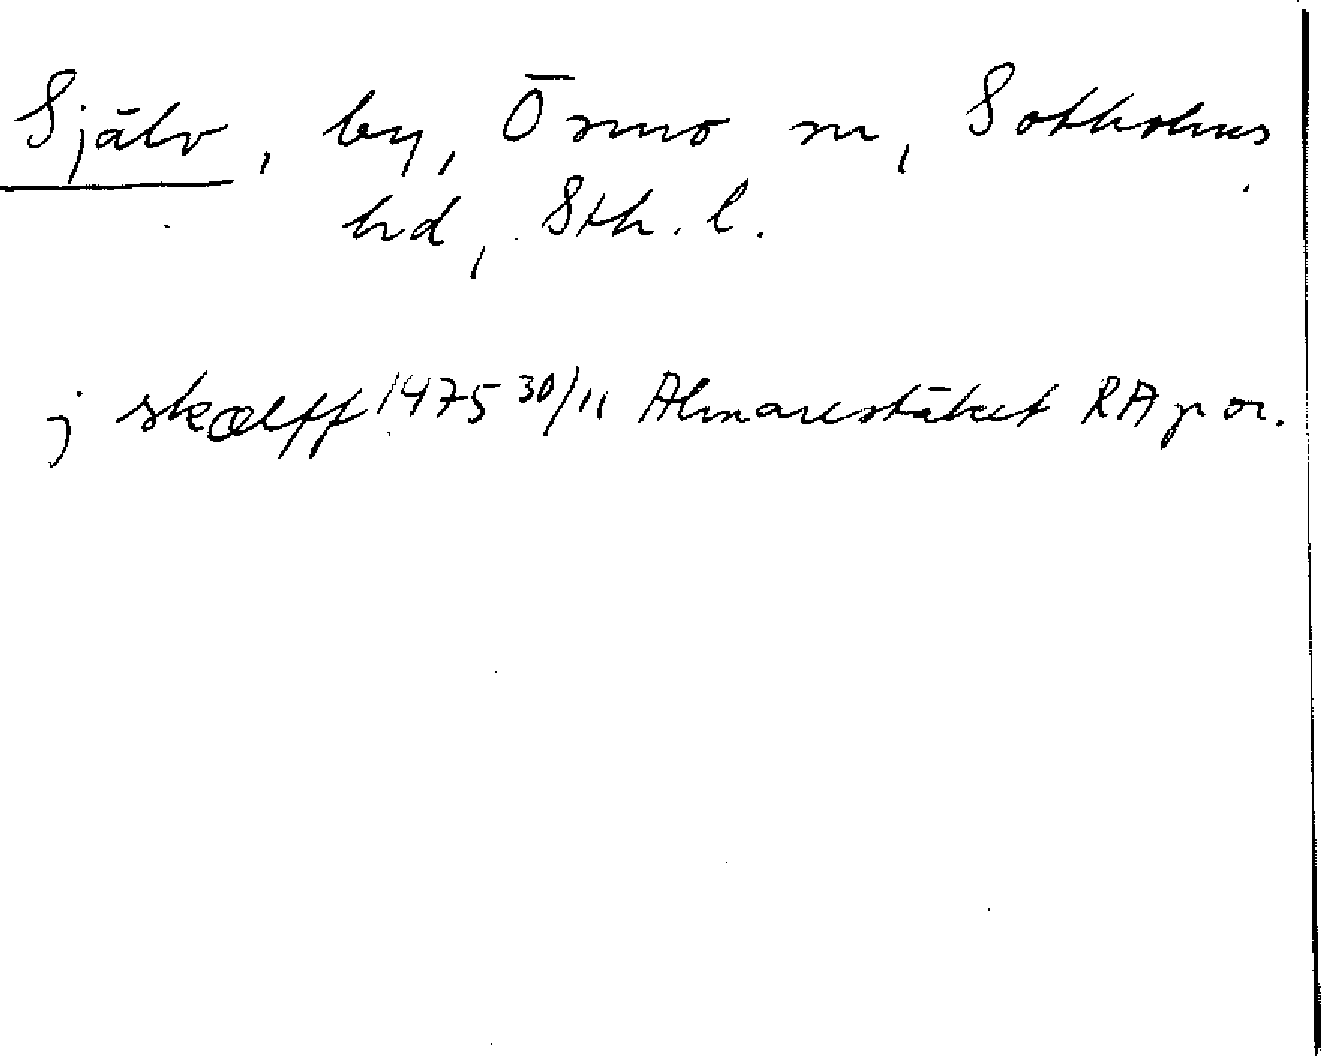 Själv, by, Ornö sn, Sotholms
hd, Sth. l.
j skælff 1475 30/11 Almarestäket RA p or.